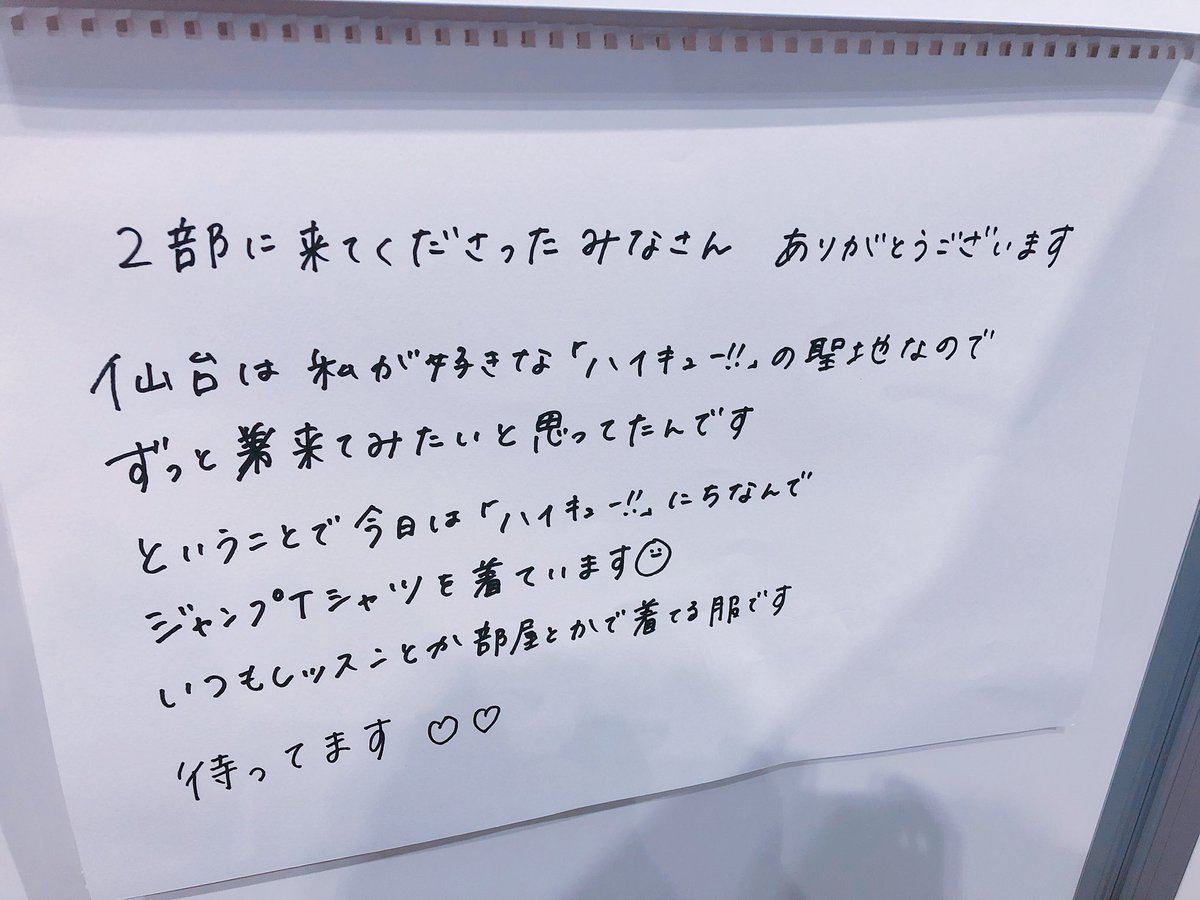 2部に来てくださったみなさん ありがとうございます
仙台は私が好きな「ハイキュー!!」の聖地なので
ずっと来てみたいと思ってたんです
ということで今日は「ハイキュー!!」にちなんで
ジャンプTシャツを着ています
いつもレッスンとか部屋とかで着てる服です
待ってます♡♡